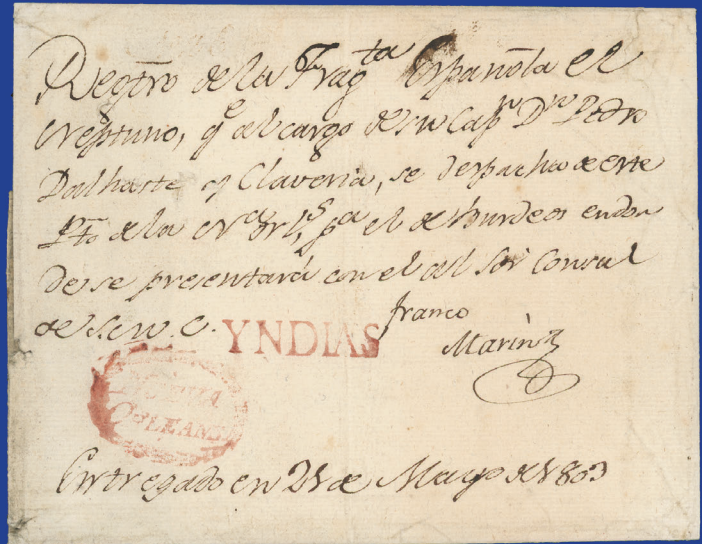 Regtro de la Fragta Española el
Neptuno, qe al cargo de su Capn Dn Pedro
Dalhaste y Claveria, se despacha de este
Pto de la Na Orls pa el de Burdeos endon
de se presentará con el al Sor Consul
de S. M. C. franco
YNDIAS
Marin
NUEVA
ORLEANS
Entregado en 21 de Mayo de 1803